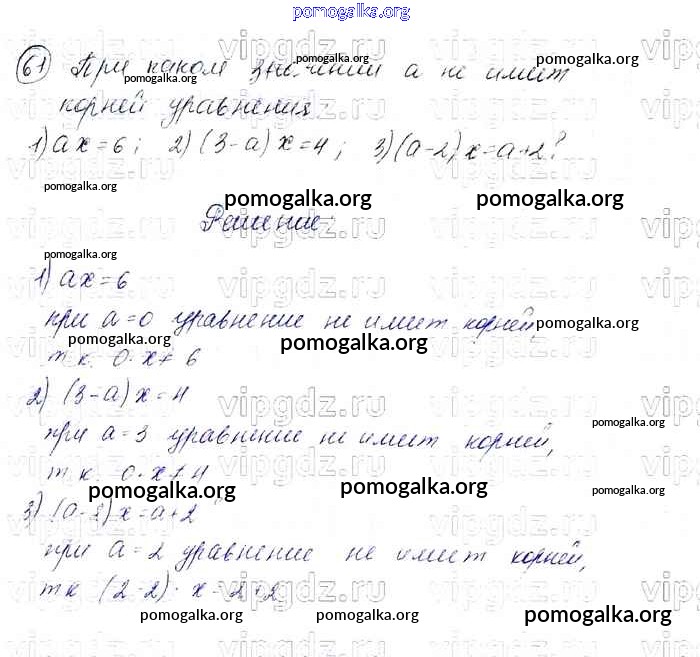 pomogalka.org
61 При каком значении а не имеет
pomogalka.org pomogalka.org
корней уравнения
pomogalka.org
1) ax = 6; 2) (3-a) x = 4; 3) (a-2) x = a+2?
pomogalka.org
pomogalka.org pomogalka.org
Решение:
pomogalka.org
1) ax = 6
при a = 0 уравнение не имеет корней,
pomogalka.org pomogalka.org pomogalka.org
т.к. 0·x ≠ 6
2) (3-a) x = 4
pomogalka.org
при a = 3 уравнение не имеет корней,
т.к. 0·x ≠ 4
pomogalka.org pomogalka.org pomogalka.org
3) (a-2) x = a+2
при a = 2 уравнение не имеет корней,
т к (2-2)· x = 2+2
pomogalka.org pomogalka.org pomogalka.org
vipgdz.ru